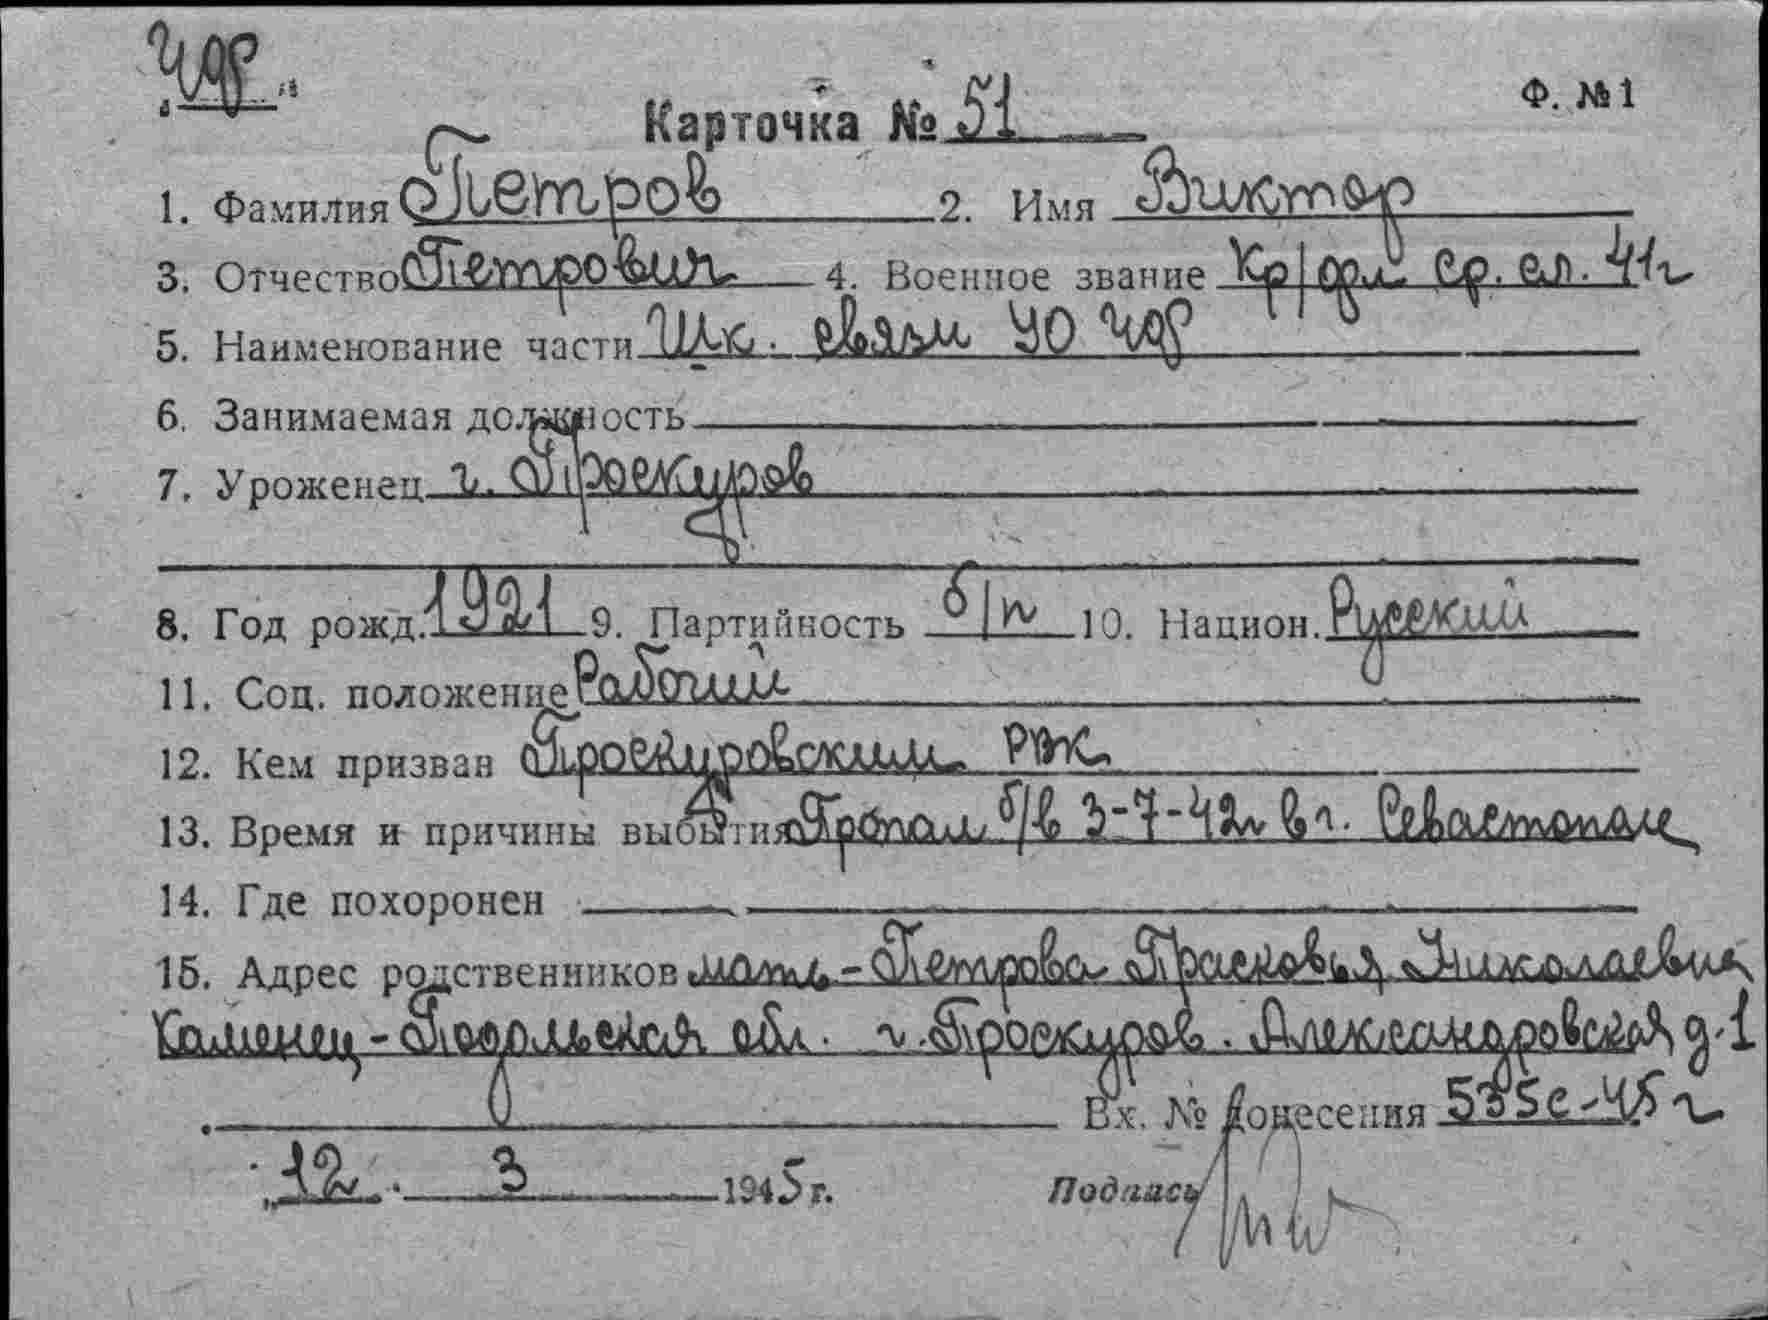 ЧФ
Карточка № 51 Ф. №1
1. Фамилия Петров 2. Имя Виктор
3. Отчество Петрович 4. Военное звание Кр/фл. ср. сл. 41г
5. Наименование части Шк. связи УО ЧФ
6. Занимаемая должность
7. Уроженец г. Проскуров
8. Год рожд. 1921 9. Партийность б/п 10. Национ. Русский
11. Соц. положение Рабочий
12. Кем призван Проскуровским РВК
13. Время и причины выбытия Пропал б/в 3-7-42г в г. Севастополе
14. Где похоронен
15. Адрес родственников мать - Петрова Прасковья Николаевна
Каменец-Подольская обл. г. Проскуров. Александровская д.1
Вх. № донесения 5335с-45 г
„12“ 3 1945 г. Подпись